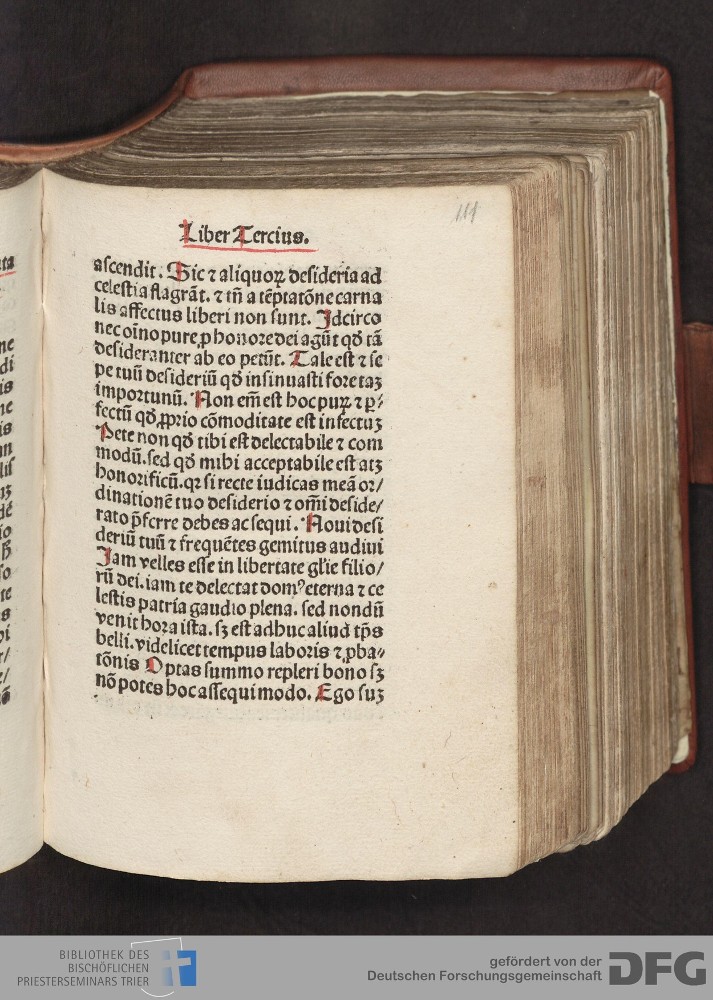 111
Liber Tercius.
ascendit. Sic ⁊ aliquoꝝ desideria ad
celestia flagrãt. ⁊ tñ a tẽptatõne carna
lis affectus liberi non sunt. Idcirco
nec oĩno pure ꝓ honore dei agũt qđ tã
desideranter ab eo petũt. Tale est ⁊ se
pe tuũ desideriũ qđ insinuasti fore taꝫ
importunũ. Non em̃ est hoc purꝝ ⁊ ꝑ⸗
fectũ qđ ꝓprio cõmoditate est infectuꝫ
Pete non qđ tibi est delectabile ⁊ com
modũ. sed qđ mihi acceptabile est atꝫ
honorificũ. qꝛ si recte iudicas meã or/
dinationẽ tuo desiderio ⁊ om̃i deside/
rato p̃ferre debes ac sequi. Noui desi
deriũ tuũ ⁊ frequẽtes gemitus audiui
Jam velles esse in libertate gl̃ie filio/
rũ dei. iam te delectat domꝰ eterna ⁊ ce
lestis patria gaudio plena. sed nondũ
venit hora ista. sꝫ est adhuc aliud tp̃s
belli. videlicet tempus laboris ⁊ ꝓba⸗
tõnis Optas summo repleri bono sꝫ
nõ potes hoc assequi modo. Ego suꝫ
BIBLIOTHEK DES
BISCHÖFLICHEN
PRIESTERSEMINARS TRIER
gefördert von der
Deutschen Forschungsgemeinschaft
DFG